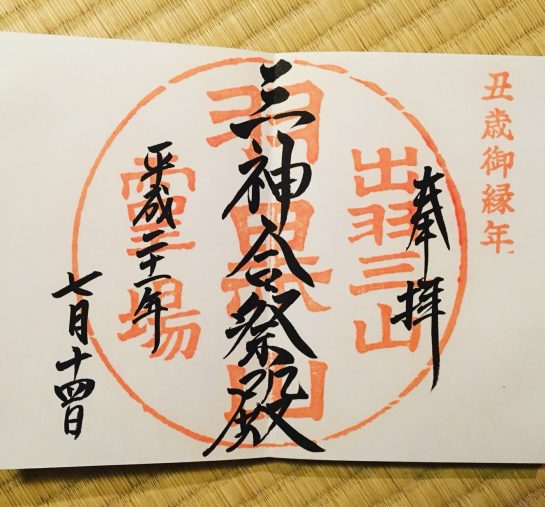 丑歳御縁年
奉拝
出羽三山
三神合祭殿
羽黒山
平成二十一年
霊場
七月十四日